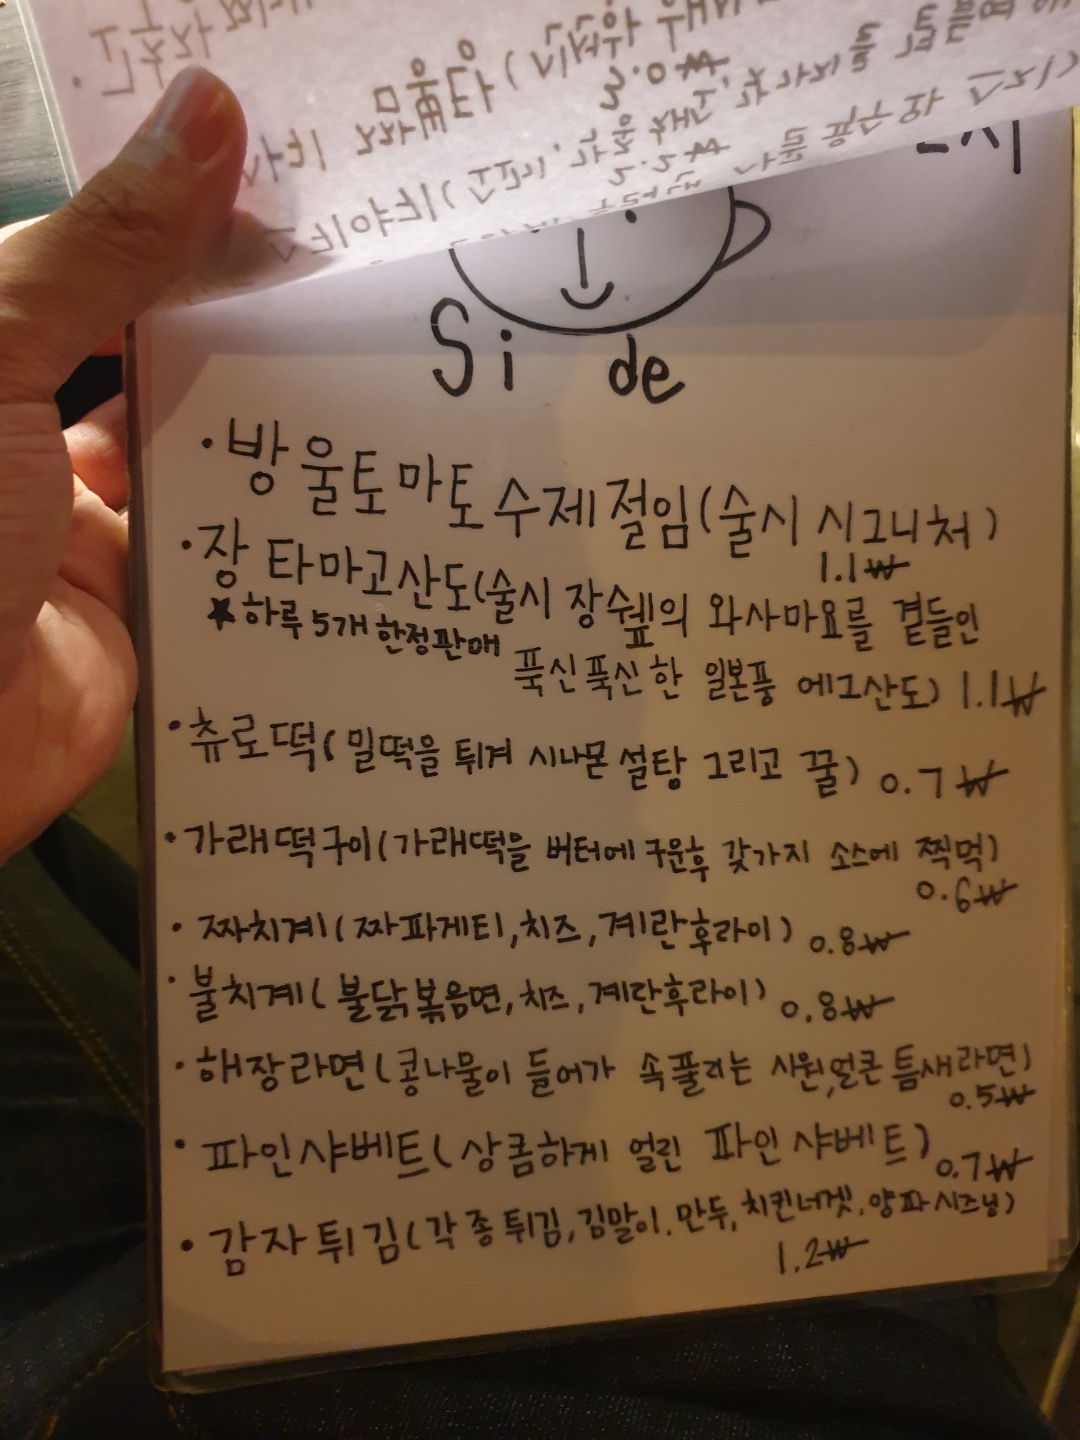 Side
· 방울토마토 수제절임(술시 시그니처)
1.1₩
· 장 타마고산도(술시 장쉪의 와사마요를 곁들인
★하루 5개 한정판매
푹신푹신한 일본풍 에그산도) 1.1₩
· 츄로떡(밀떡을 튀겨 시나몬 설탕 그리고 꿀) 0.7₩
· 가래떡구이(가래떡을 버터에 구운후 갖가지 소스에 찍먹)
0.6₩
· 짜치계(짜파게티,치즈,계란후라이) 0.8₩
· 불치계(불닭볶음면,치즈,계란후라이) 0.8₩
· 해장라면(콩나물이 들어가 속풀리는 시원,얼큰 틈새라면)
0.5₩
· 파인샤베트(상콤하게 얼린 파인 샤베트) 0.7₩
· 감자튀김(각종튀김,김말이.만두,치킨너겟.양파시즈닝)
1.2₩